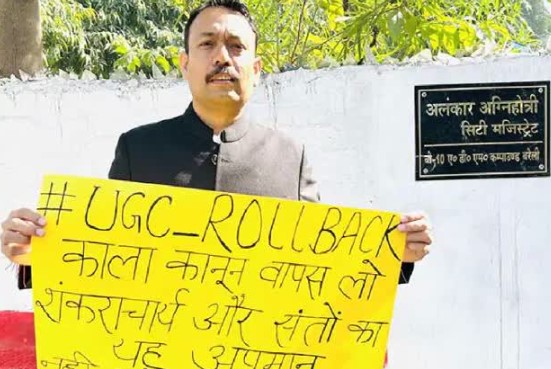 अलंकार अग्निहोत्री
सिटी मजिस्ट्रेट
बी-10 ए० डी० एम० कम्पाउण्ड बरेली
#UGC_ROLLBACK
काला कानून वापस लो
शंकराचार्य और संतों का
यह अपमान
नहीं